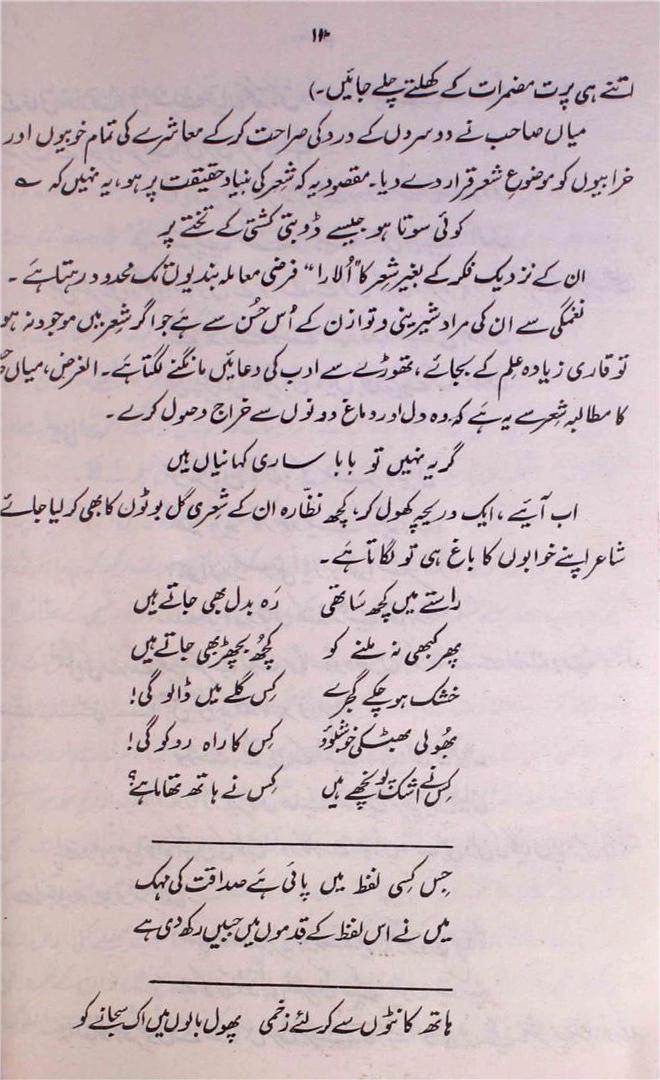 اتنے ہی پرت مضمرات کے کھلتے چلے جائیں۔)
میاں صاحب نے دوسروں کے درد کی صراحت کرکے معاشرے کی تمام خوبیوں اور
خرابیوں کو موضوعِ شعر قرار دے دیا۔ مقصود یہ کہ شعر کی بنیاد حقیقت پر ہو، یہ نہیں کہ ؎
کوئی سوتا ہو جیسے ڈوبتی کشتی کے تختے پر
ان کے نزدیک فکر کے بغیر شعر کا "اُلارا" فرضی معاملہ بندیوں تک محدود رہتا ہے۔
نغمگی سے ان کی مراد شیرینی و توازن کے اُس حُسن سے ہے جو اگر شعر میں موجود نہ ہو
تو قاری زیادہ علم کے بجائے، تھوڑے سے ادب کی دعائیں مانگنے لگتا ہے۔ الغرض، میاں
کا مطالبہ شعر سے یہ ہے کہ وہ دل اور دماغ دونوں سے خراج وصول کرے۔
گر یہ نہیں تو بابا ساری کہانیاں ہیں
اب آئیے، ایک دریچہ کھول کر، کچھ نظّارہ ان کے شعری گل بوٹوں کا بھی کر لیا جائے
شاعر اپنے خوابوں کا باغ ہی تو لگاتا ہے۔
راستے میں کچھ ساتھی رَہ بدل بھی جاتے ہیں
پھر کبھی نہ ملنے کو کچھ بچھڑ بھی جاتے ہیں
خشک ہو چکے گجرے کِس گلے میں ڈالو گی!
بھُولی بھٹکی خوشبوؤ کِس کا راہ روکو گی!
کِس نے اشک پونچھے ہیں کِس نے ہاتھ تھاما ہے؟
جِس کِسی لفظ میں پائی ہے صداقت کی مہک
میں نے اس لفظ کے قدموں میں جبیں رکھ دی ہے
ہاتھ کانٹوں سے کر لئے زخمی پھول بالوں میں اک سجانے کو